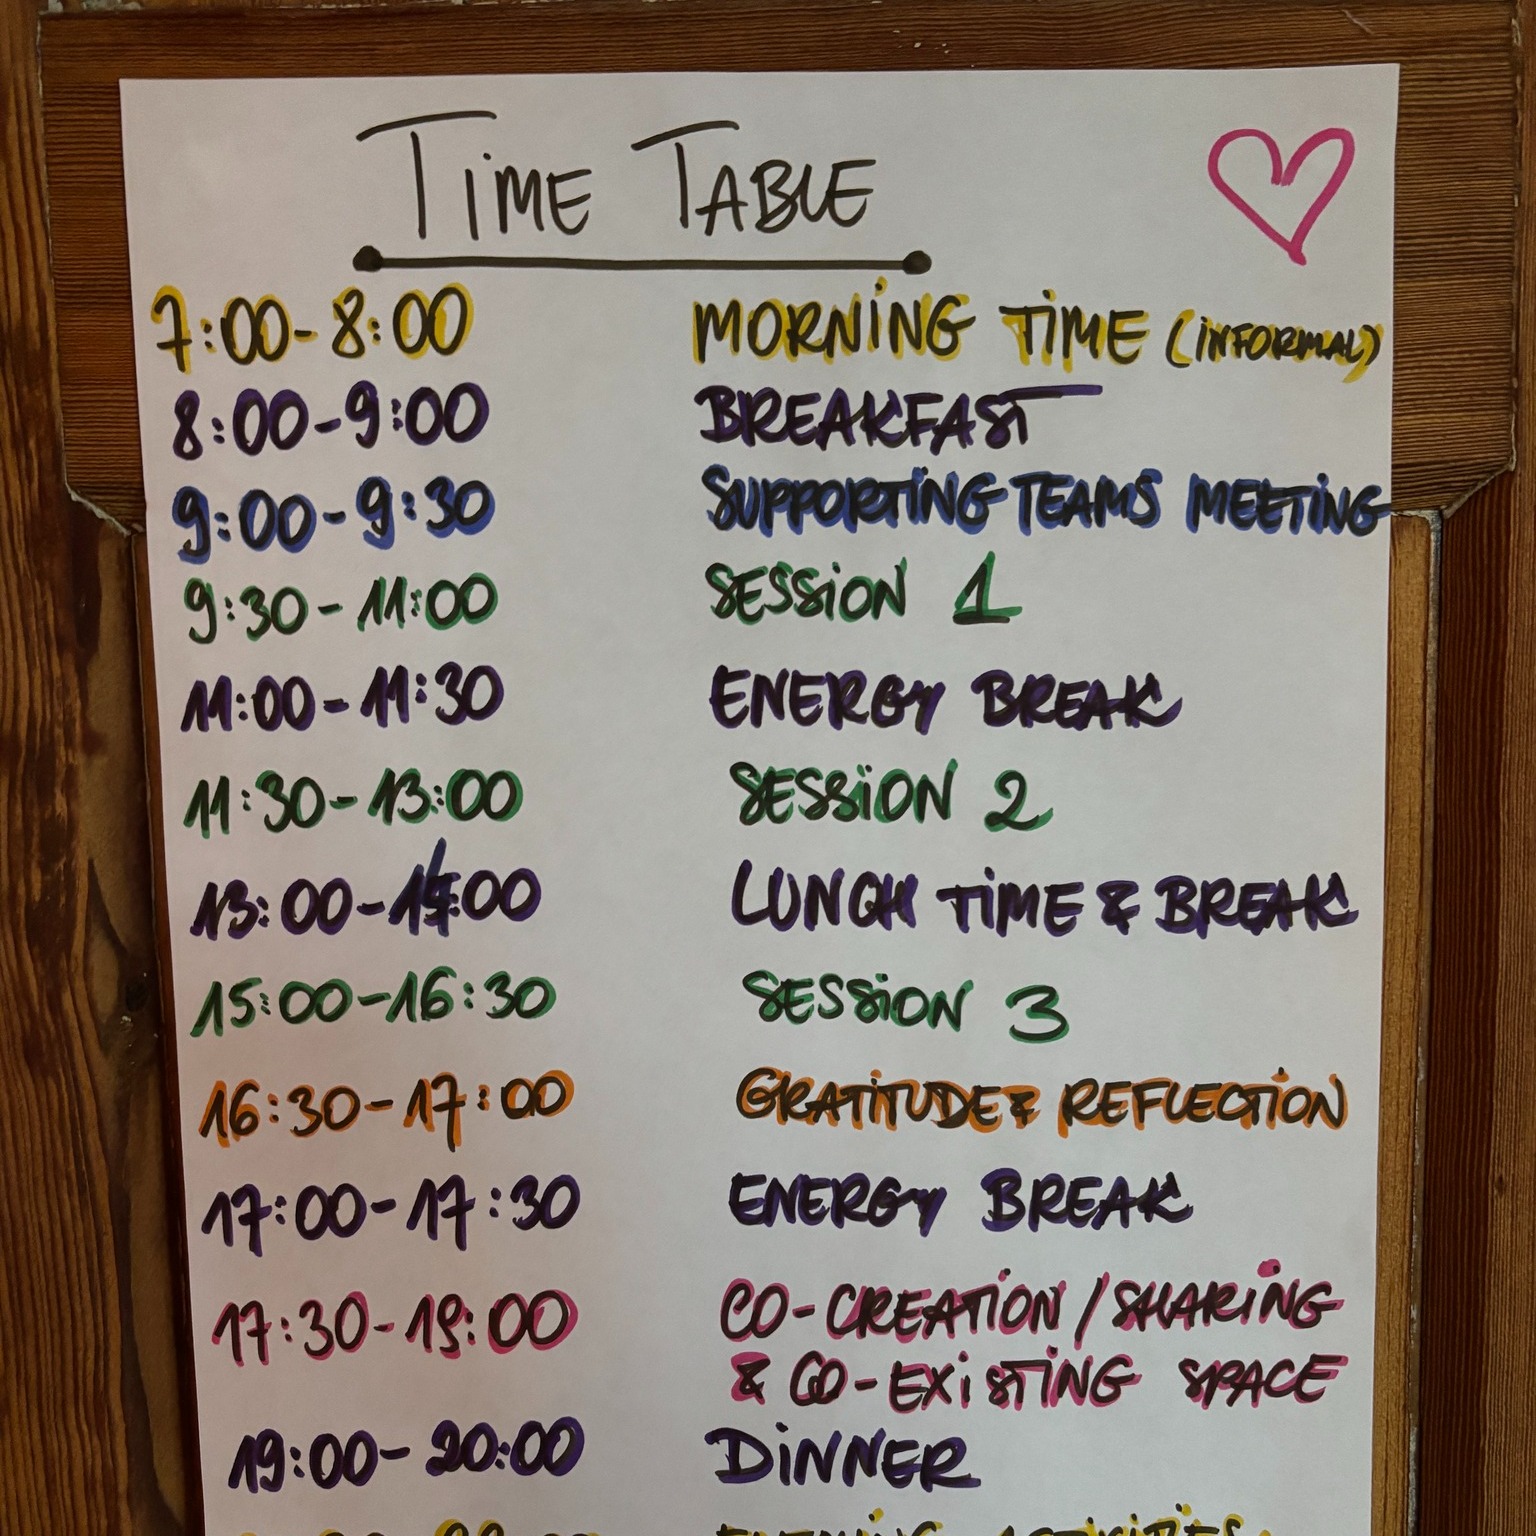 TiME TABLE
7:00-8:00 MORNiNG TiME (iNFORMAL)
8:00-9:00 BREAKFAST
9:00-9:30 SUPPORTiNG TEAMS MEETiNG
9:30-11:00 SESSiON 1
11:00-11:30 ENERGY BREAK
11:30-13:00 SESSiON 2
13:00- LUNCH TiME & BREAK
15:00-16:30 SESSiON 3
16:30-17:00 GRATiTUDE & REFLECTiON
17:00-17:30 ENERGY BREAK
17:30-19:00 CO-CREATiON / SHARiNG
& CO-EXiSTiNG SPACE
19:00-20:00 DiNNER